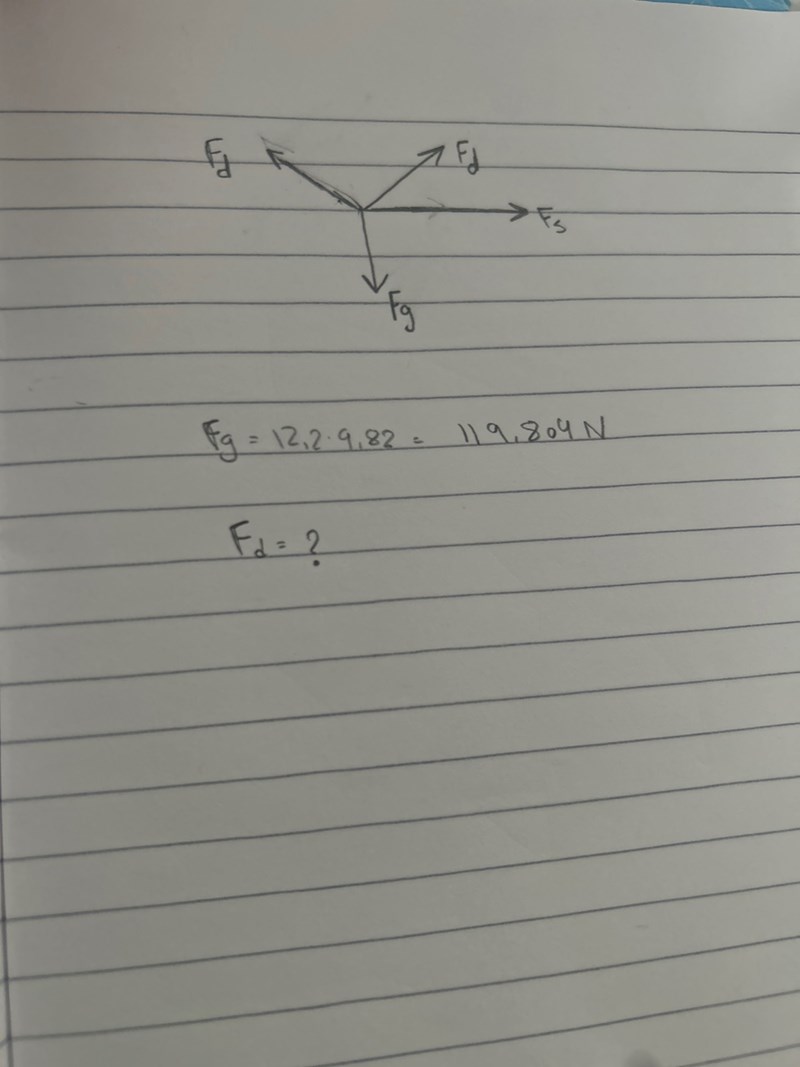 Fd
Fd
Fs
Fg
Fg = 12,2·9,82 = 119,804 N
Fd = ?